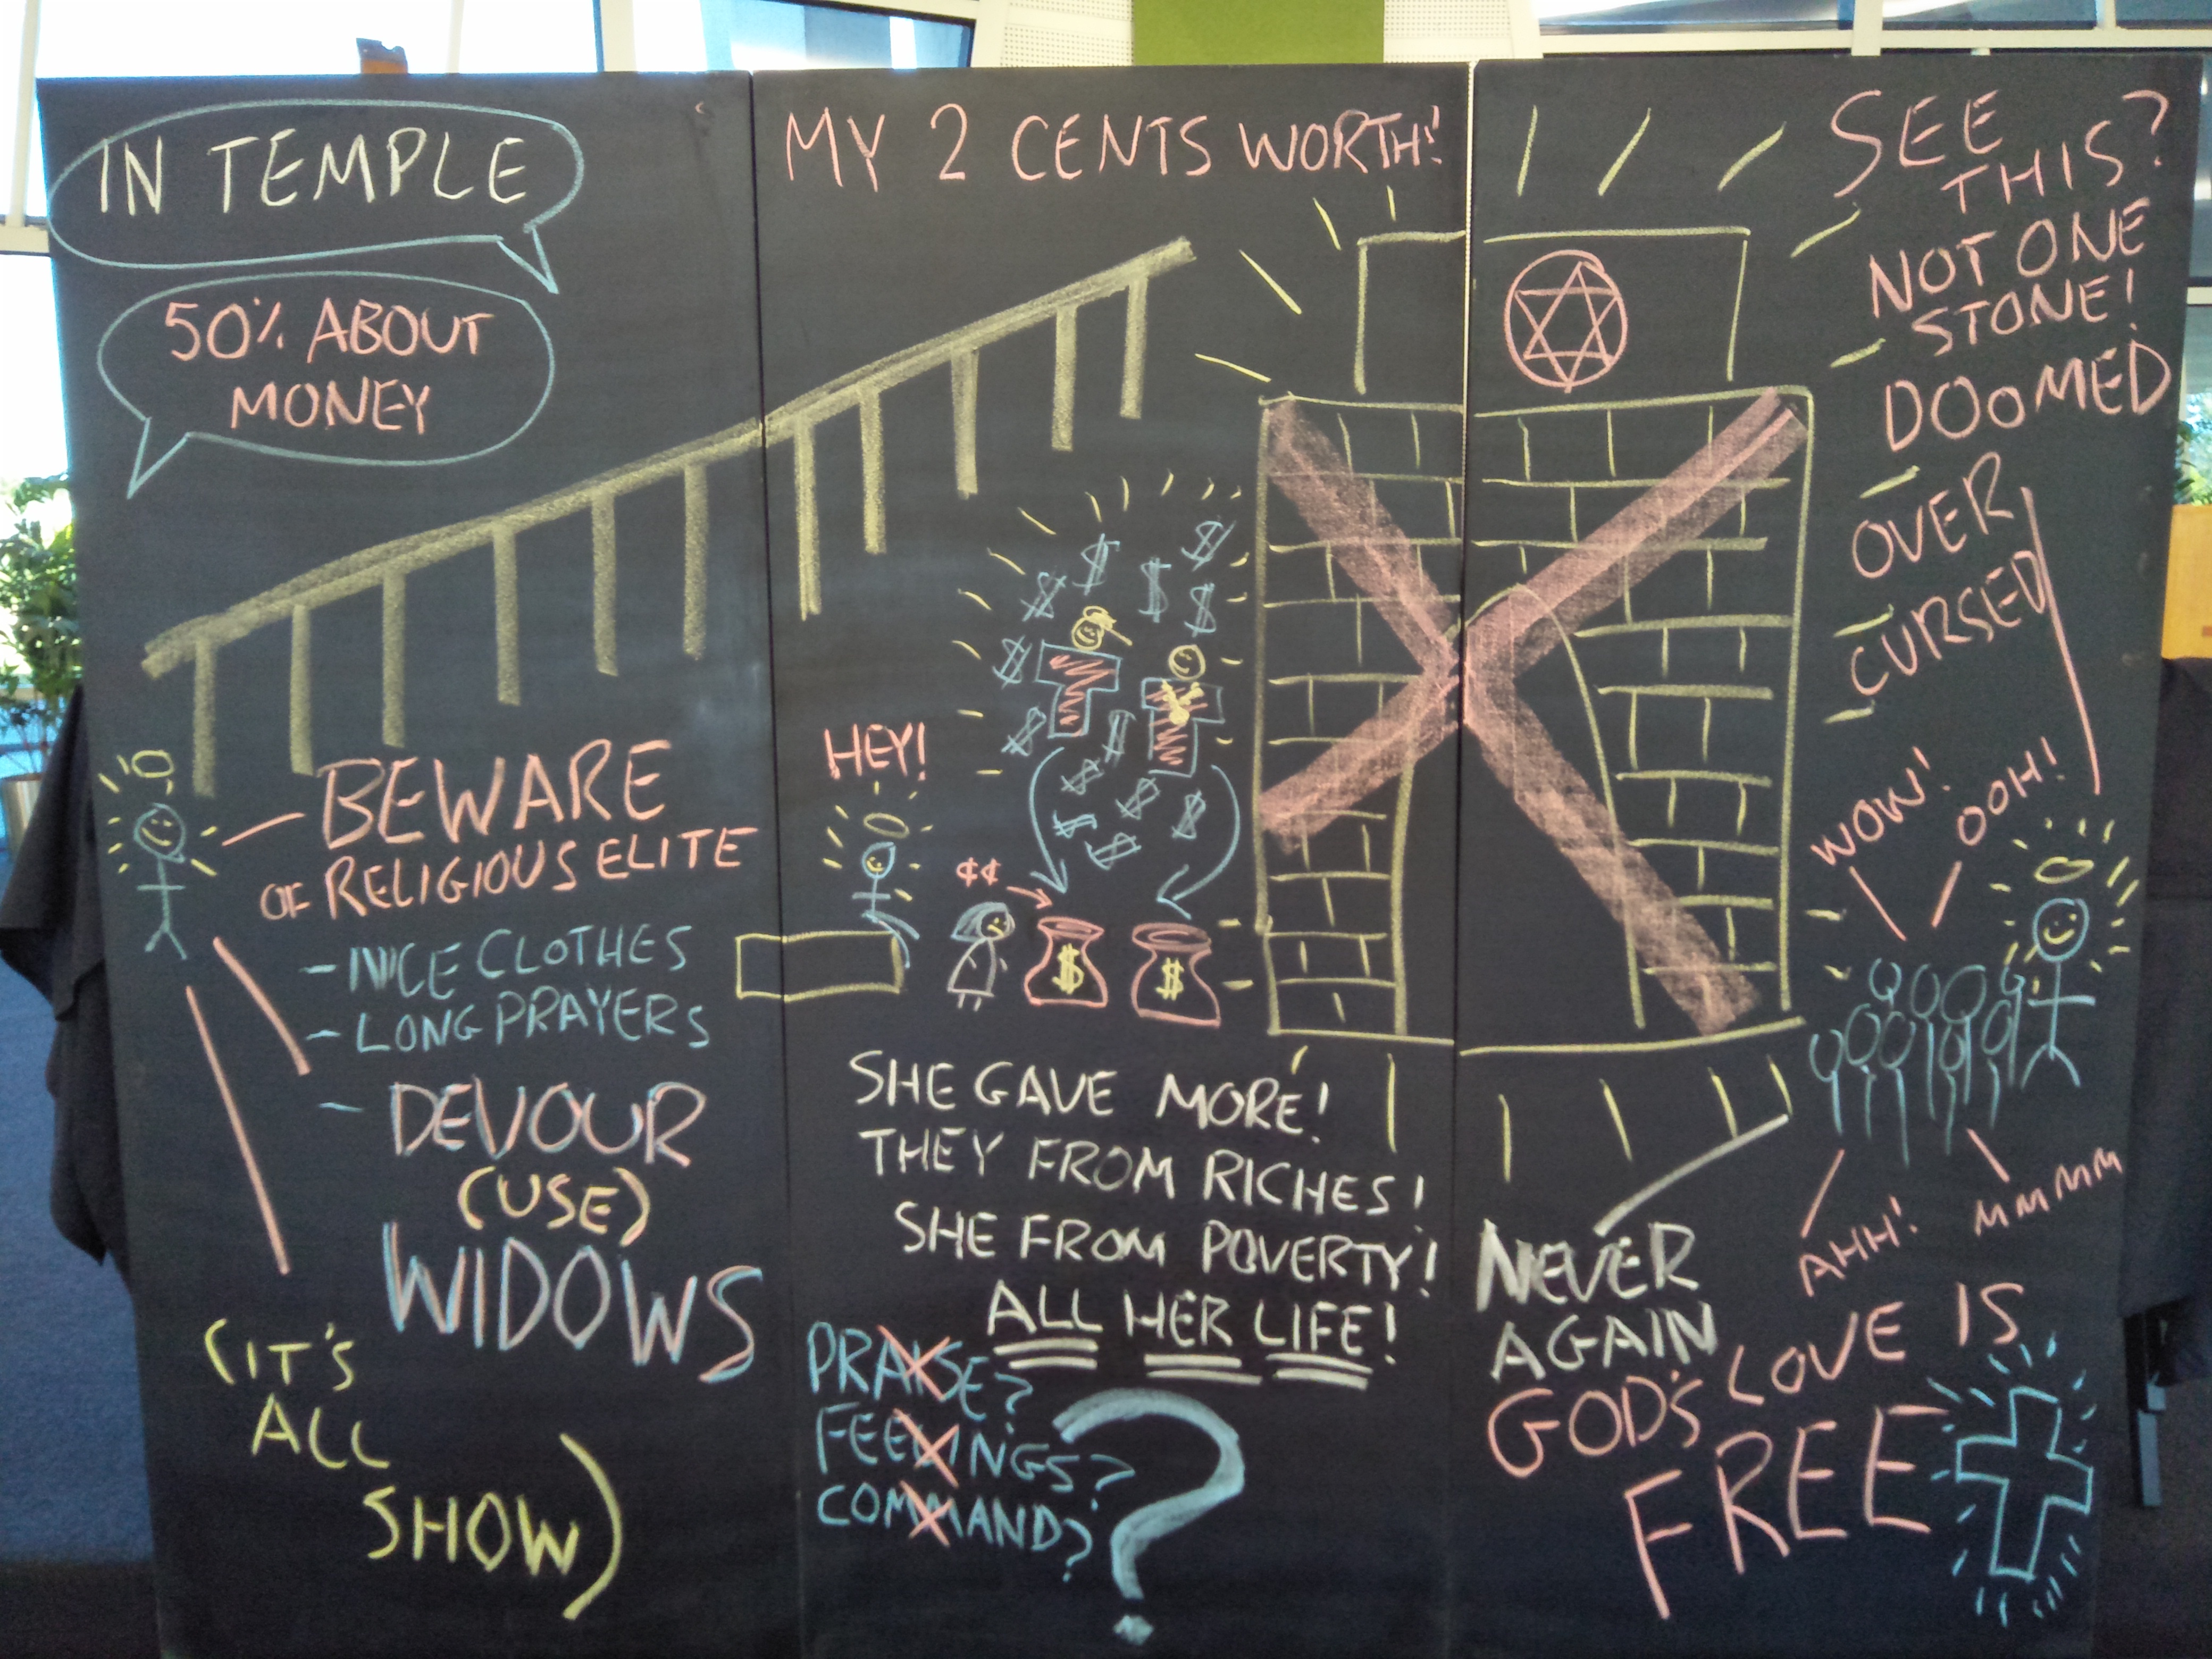 IN TEMPLE
50% ABOUT
MONEY
BEWARE
OF RELIGIOUS ELITE
- NICE CLOTHES
- LONG PRAYERS
- DEVOUR
(USE)
WIDOWS
(IT'S
ALL
SHOW)
MY 2 CENTS WORTH!
HEY!
$
$
$
$
$
$
$
$
$
$
$
$
$
¢¢
$
$
SHE GAVE MORE!
THEY FROM RICHES!
SHE FROM POVERTY!
ALL HER LIFE!
PRAISE?
FEELINGS?
COMMAND?
?
SEE
THIS?
NOT ONE
STONE!
DOOMED
OVER
CURSED
WOW!
OOH!
AHH!
MMMM
NEVER
AGAIN
GOD'S LOVE IS
FREE